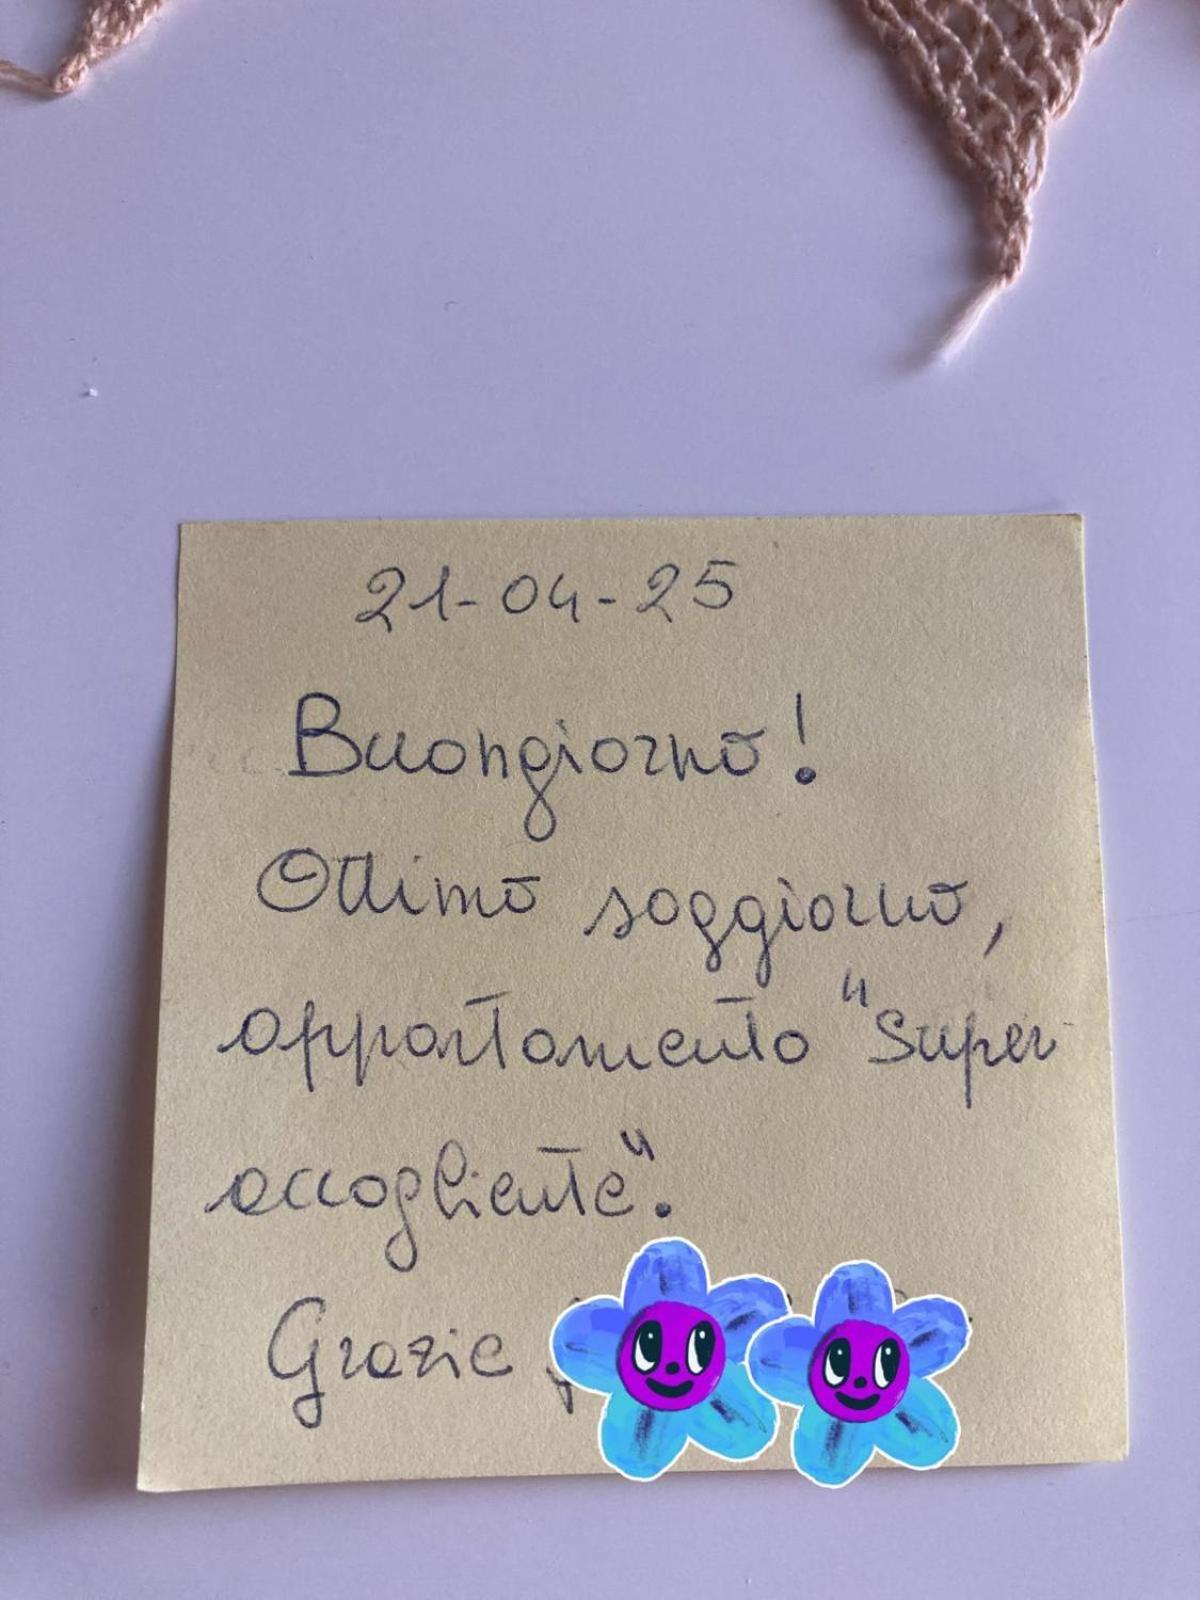 21-04-25
Buongiorno!
Ottimo soggiorno,
appartamento "Super
accogliente".
Grazie